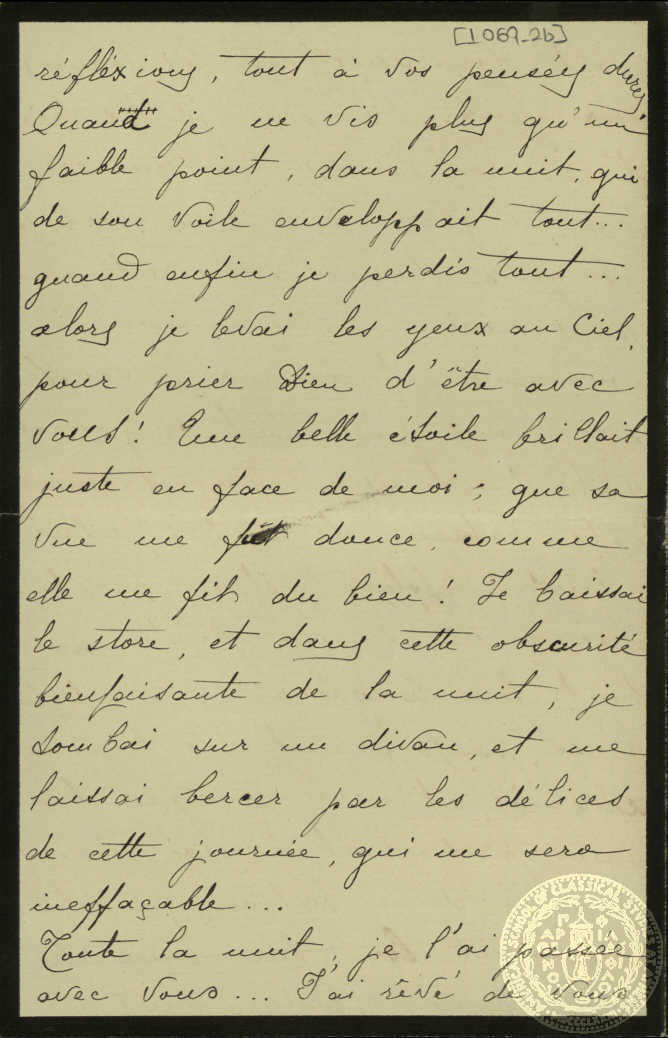 [1069-2b]
réfléxions, tout à vos pensées dures,
Quand je ne vis plus qu'un
faible point, dans la nuit, qui
de son voile enveloppait tout...
quand enfin je perdis tout...
alors je levai les yeux au Ciel,
pour prier Dieu d'être avec
vous! Une belle étoile brillait
juste en face de moi; que sa
vue me fut douce, comme
elle me fit du bien! Je baissai
le store, et dans cette obscurité
bienfaisante de la nuit, je
tombai sur un divan, et me
laissai bercer par les délices
de cette journée, qui me sera
ineffaçable...
Toute la nuit, je l'ai passée
avec vous... J'ai rêvé de vous